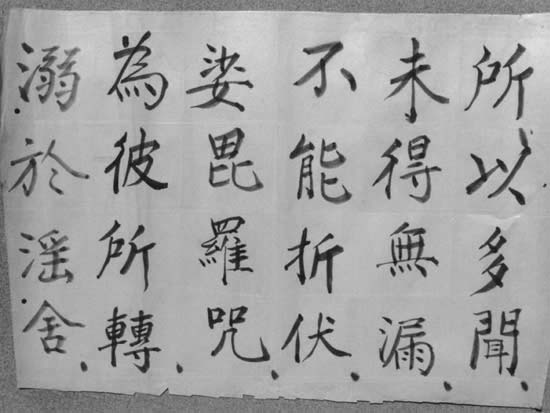 所以多聞、
未得無漏、
不能折伏、
娑毘羅咒、
為彼所轉、
溺於淫舍、